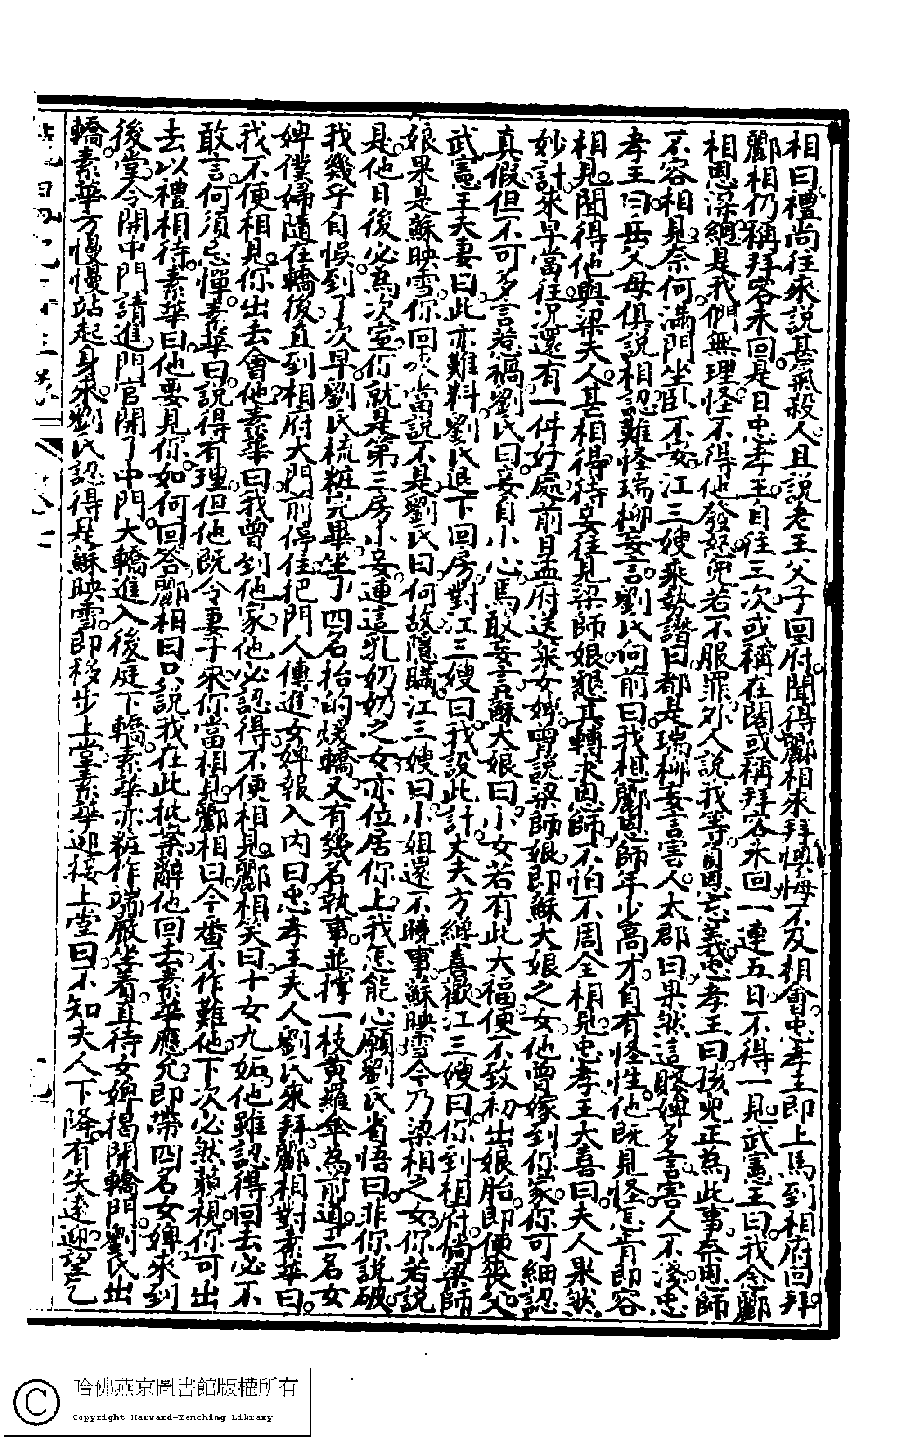 相曰禮尚往來說甚氣殺人且說老王父子回府聞得酈相來拜懊悔不及相會忠孝王即上馬到相府回拜
酈相仍稱拜客未回是日忠孝王自往三次或稱在閣或稱拜客未回一連五日不得一見武憲王曰我念酈
相恩深總是我們無理怪不得他發怒兒若不服罪外人說我等負恩忘義忠孝王曰孩兒正為此事奈恩師
不容相見奈何滿門坐臥不安江三嫂乘勢譖曰都是瑞柳妄言害人太郡曰果然這賤婢多言害人不淺忠
孝王曰岳父母俱說相認難怪瑞柳妄言劉氏向前曰我想酈恩師年少高才自有怪性他既見怪怎肯即容
相見聞得他與梁夫人甚相得待妾往見梁師娘懇其轉求恩師不怕不周全相見忠孝王大喜曰夫人果然
妙計來早當往況還有一件好處前日孟府送來女婢曾說梁師娘即蘇大娘之女他曾嫁到你家你可細認
真假但不可多言惹禍劉氏曰妾自小心焉敢妄言蘇大娘曰小女若有此大福便不致初出娘胎即便喪父
武憲王夫妻曰此亦難料劉氏退下回房對江三嫂曰我設此計丈夫方纔喜歡江三嫂曰你到相府倘梁師
娘果是蘇映雪你回來當說不是劉氏曰何故隱瞞江三嫂曰小姐還不曉事蘇映雪今乃梁相之女你若說
是他日後必為次室你就是第三房小妾連這乳奶奶之女亦位居你上我怎能心願劉氏省悟曰非你說破
我幾乎自悞到了次早劉氏梳粧完畢坐了四名抬的煖轎又有幾名執事並撑一枝黃羅傘為前道二名女
婢僕婦隨在轎後直到相府大門前停住把門人傳進女婢報入內曰忠孝王夫人劉氏來拜酈相對素華曰
我不便相見你出去會他素華曰我曾到他家他必認得不便相見酈相笑曰十女九妬他雖認得回去必不
敢言何須忌憚素華曰說得有理但他既令妻子來你當相見酈相曰今番不作難他下次必然藐視你可出
去以禮相待素華曰他要見你如何回答酈相曰只說我在此批案辭他回去素華應允即帶四名女婢來到
後堂令開中門請進門官開了中門大轎進入後庭下轎素華亦粧作端嚴坐着直待女婢揭開轎門劉氏出
轎素華方慢慢站起身來劉氏認得是蘇映雪即移步上堂素華迎接上堂曰不知夫人下降有失遠迎望乞
哈佛燕京圖書館版權所有
Copyright Harvard-Yenching Library